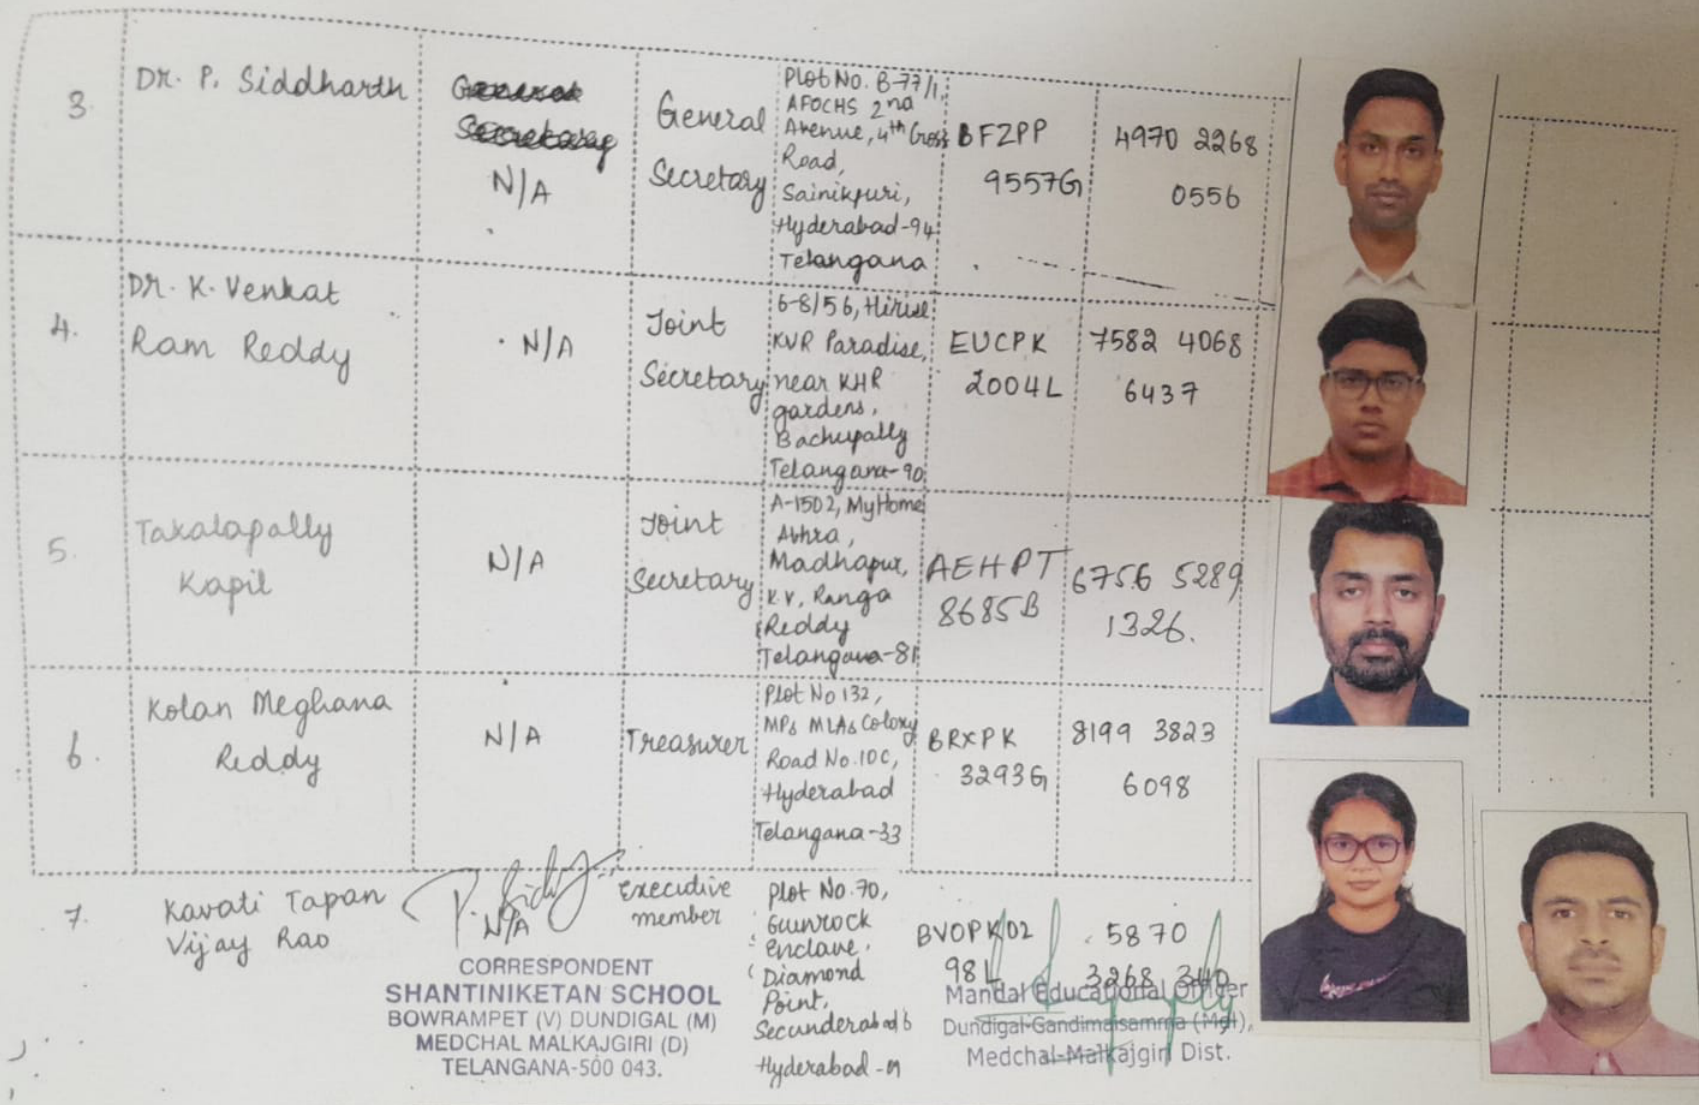 3.
Dr. P. Siddharth
N/A
General
Secretary
Plot No. B-77/1,
AFOCHS 2nd
Avenue, 4th Cross
Road,
Sainikpuri,
Hyderabad-94
Telangana
BFZPP
9557G
4970 2268
0556
4.
Dr. K. Venkat
Ram Reddy
N/A
Joint
Secretary
6-8/56,
KVR Paradise,
near KHR
gardens,
Bachupally
Telangana-90
EUCPK
2004L
7582 4068
6437
5.
Takalapally
Kapil
N/A
Joint
Secretary
A-1502, MyHome
Abhra,
Madhapur,
K.V. Ranga
Reddy
Telangana-81
AEHPT
8685B
6756 5289
1326.
6.
Kolan Meghana
Reddy
N/A
Treasurer
Plot No 132,
MPs MLAs Colony
Road No.10C,
Hyderabad
Telangana-33
BRXPK
3293G
8199 3823
6098
7.
Kavati Tapan
Vijay Rao
N/A
Executive
member
Plot No.70,
Gunrock
Enclave,
Diamond
Point,
Secunderabad
Hyderabad
BVOPK02
98L
5870
3268
CORRESPONDENT
SHANTINIKETAN SCHOOL
BOWRAMPET (V) DUNDIGAL (M)
MEDCHAL MALKAJGIRI (D)
TELANGANA-500 043.
Mandal Educational Officer
Dundigal-Gandimaisamma (Mdl),
Medchal-Malkajgiri Dist.